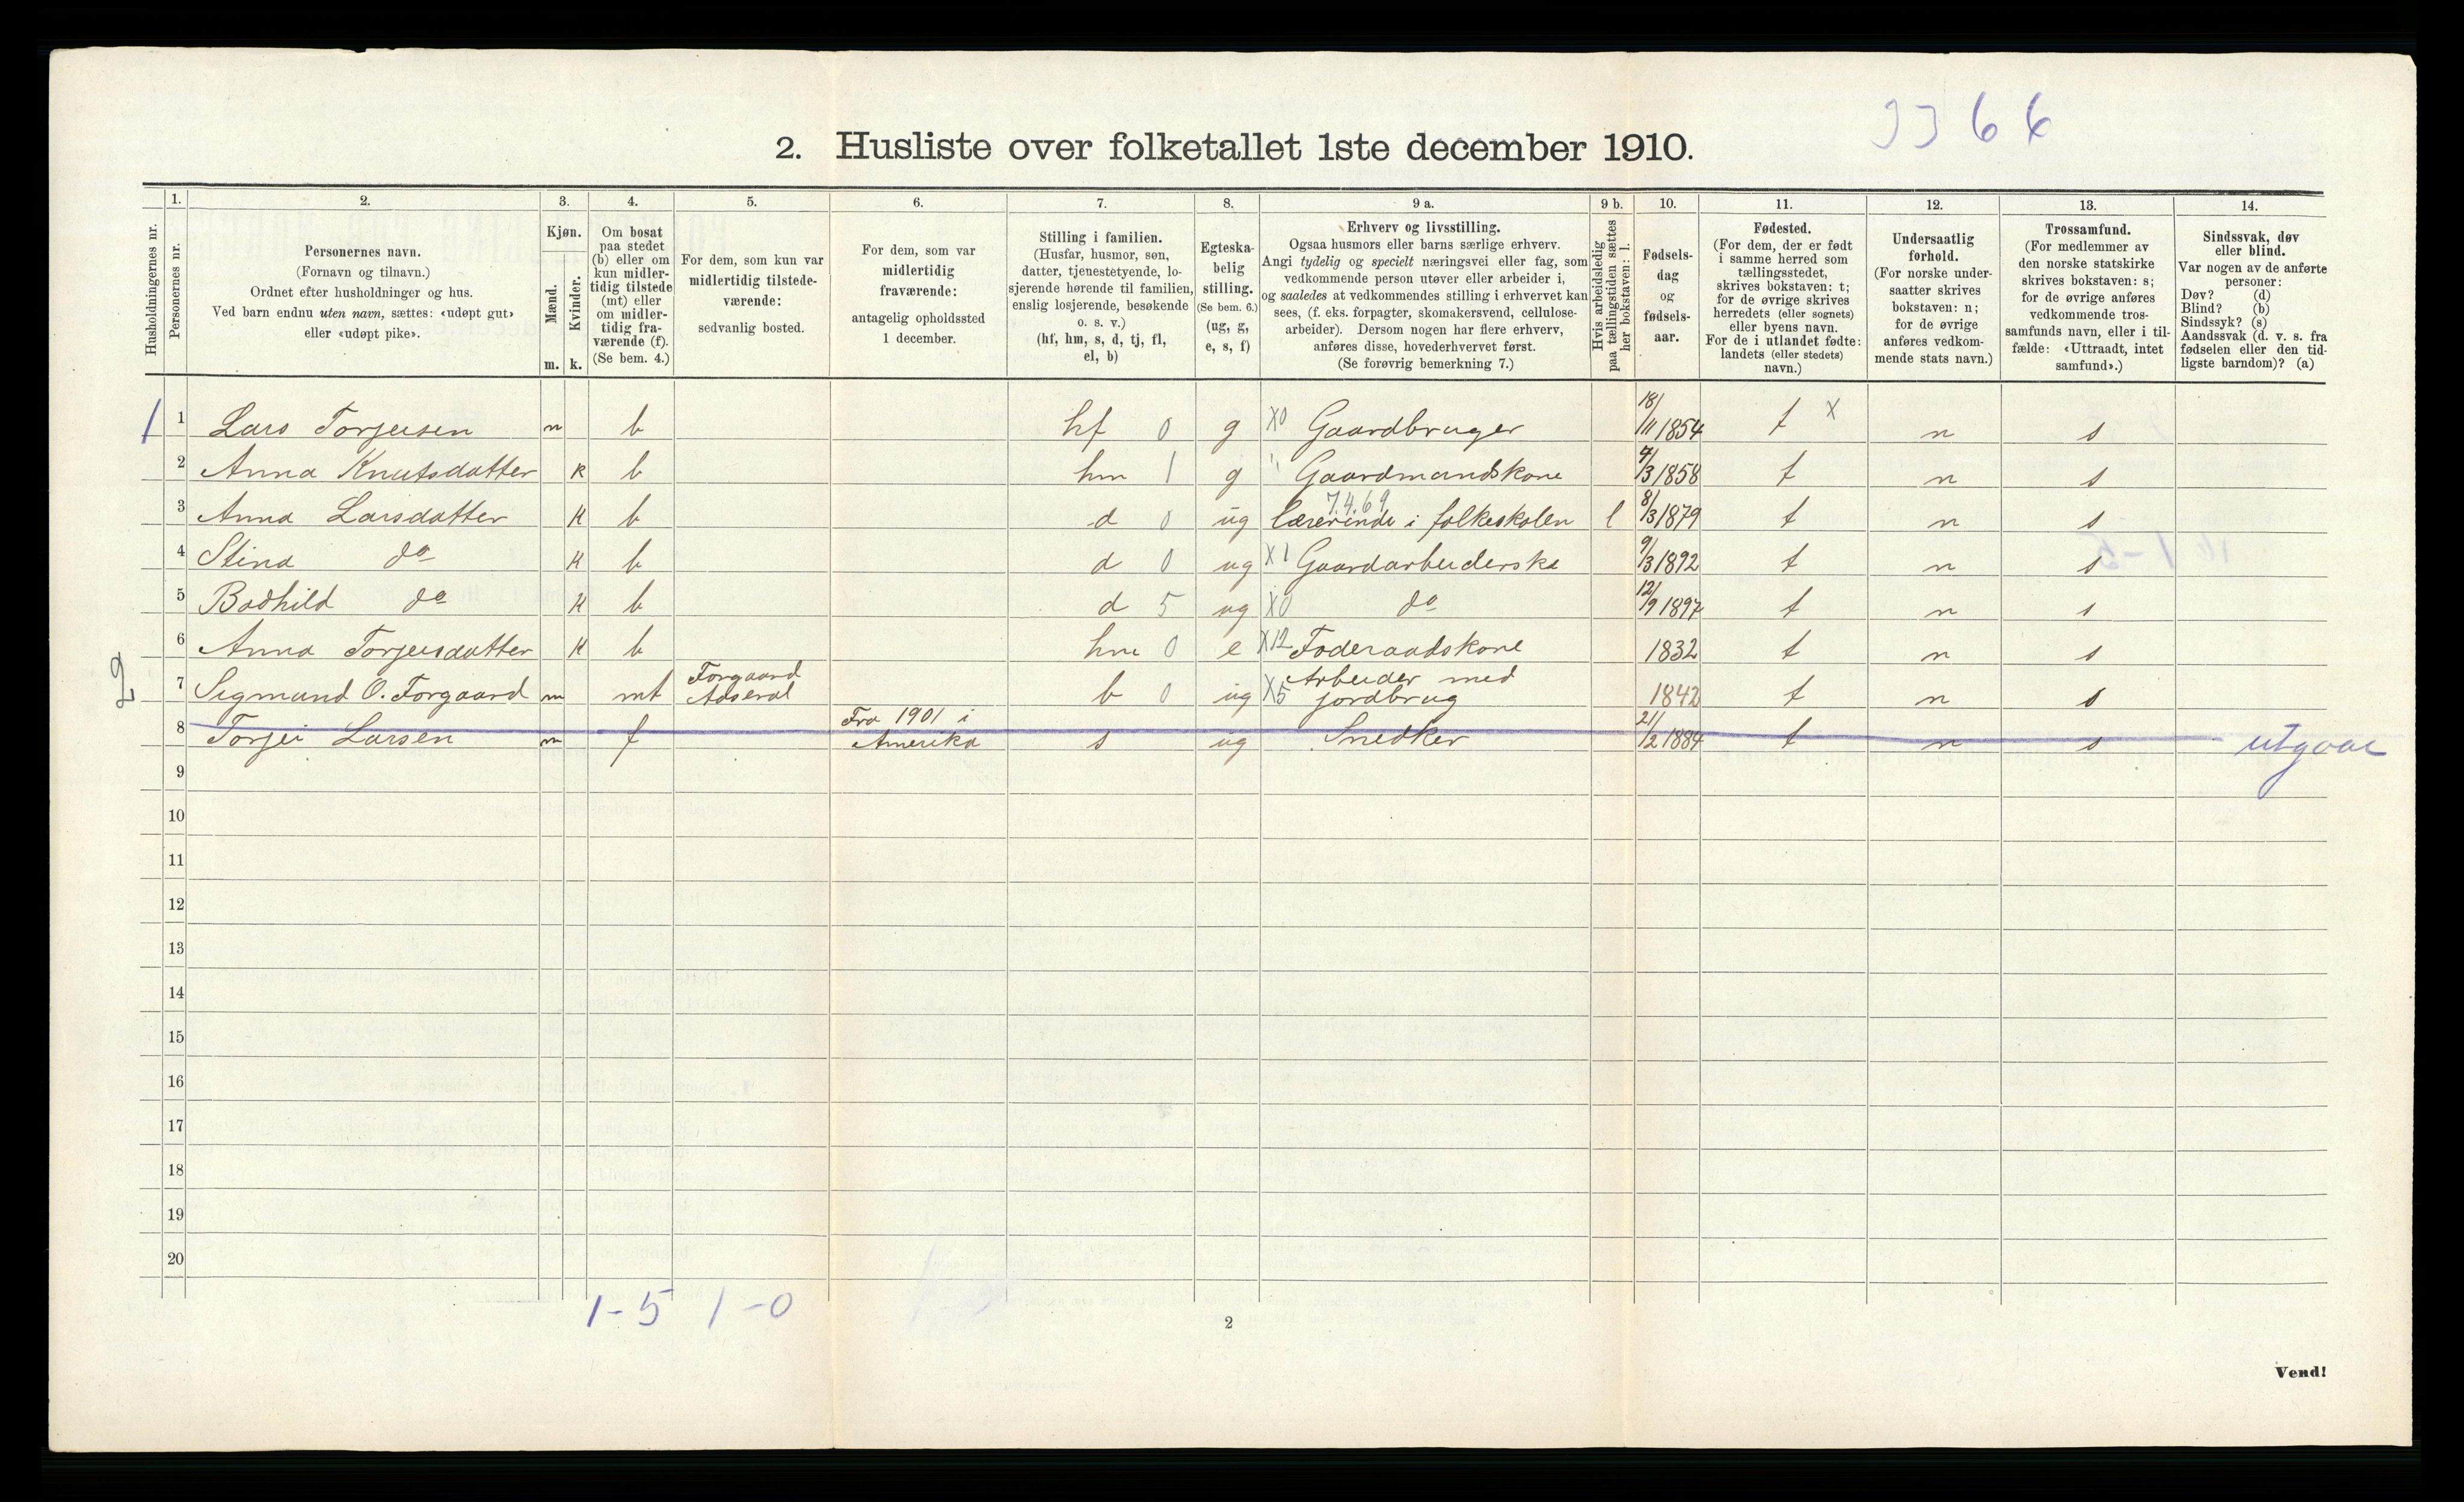 3366
2. Husliste over folketallet 1ste december 1910.
1. 2. 3. 4. 5. 6. 7. 8. 9 a. 9 b. 10. 11. 12. 13. 14.
Husholdningernes nr.
Personernes nr.
Personernes navn.
(Fornavn og tilnavn.)
Ordnet efter husholdninger og hus.
Ved barn endnu uten navn, sættes: «udøpt gut»
eller «udøpt pike».
Kjøn.
Mænd.
Kvinder.
m. k.
Om bosat
paa stedet
(b) eller om
kun midler-
tidig tilstede
(mt) eller
om midler-
tidig fra-
værende (f).
(Se bem. 4.)
For dem, som kun var
midlertidig tilstede-
værende:
sedvanlig bosted.
For dem, som var
midlertidig
fraværende:
antagelig opholdssted
1 december.
Stilling i familien.
(Husfar, husmor, søn,
datter, tjenestetyende, lo-
sjerende hørende til familien,
enslig losjerende, besøkende
o. s. v.)
(hf, hm, s, d, tj, fl,
el, b)
Egteska-
belig
stilling.
(Se bem. 6.)
(ug, g,
e, s, f)
Erhverv og livsstilling.
Ogsaa husmors eller barns særlige erhverv.
Angi tydelig og specielt næringsvei eller fag, som
vedkommende person utøver eller arbeider i,
og saaledes at vedkommendes stilling i erhvervet kan
sees, (f. eks. forpagter, skomakersvend, cellulose-
arbeider). Dersom nogen har flere erhverv,
anføres disse, hovederhvervet først.
(Se forøvrig bemerkning 7.)
Hvis arbeidsledig
paa tællingstiden sættes
her bokstaven: l.
Fødsels-
dag
og
fødsels-
aar.
Fødested.
(For dem, der er født
i samme herred som
tællingsstedet,
skrives bokstaven: t;
for de øvrige skrives
herredets (eller sognets)
eller byens navn.
For de i utlandet fødte:
landets (eller stedets)
navn.)
Undersaatlig
forhold.
(For norske under-
saatter skrives
bokstaven: n;
for de øvrige
anføres vedkom-
mende stats navn.)
Trossamfund.
(For medlemmer av
den norske statskirke
skrives bokstaven: s;
for de øvrige anføres
vedkommende tros-
samfunds navn, eller i til-
fælde: «Uttraadt, intet
samfund».)
Sindssvak, døv
eller blind.
Var nogen av de anførte
personer:
Døv? (d)
Blind? (b)
Sindssyk? (s)
Aandssvak (d. v. s. fra
fødselen eller den tid-
ligste barndom)? (a)
1 1 Lars Torjeisen m b hf 0 g X0 Gaardbruger 18/11 1854 t X n s
2 Anna Knutsdatter k b hm 1 g " Gaardmandskone 4/3 1858 t n s
7.4.69
3 Anna Larsdatter k b d 0 ug Lærerinde i folkeskolen l 8/3 1879 t n s
4 Stina do k b d 0 ug X1 Gaardarbeiderske 9/3 1892 t n s
5 Bodhild do k b d 5 ug X0 do 12/9 1897 t n s
6 Anna Torjeisdatter k b hm 0 e X12 Foderaadskone 1832 t n s
29
7 Sigmund O. Forgaard m mt Forgaard Adseral b 0 ug X5 Arbeider med jordbrug 1842 t n s
8 Torjei Larsen m f Fra 1901 i Amerika s ug Snedker 21/2 1884 t n s utgaar
9
10
11
12
13
14
15
16
17
18
19
20
1-5 1-0
2
Vend!